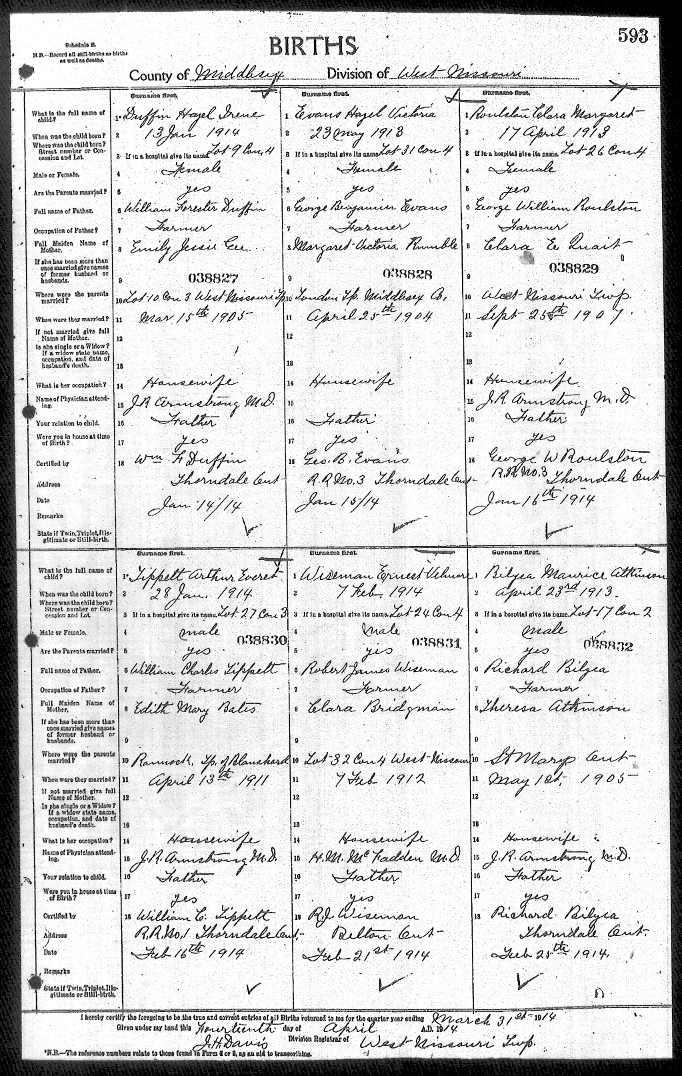 Schedule B.
N.B.—Record all still-births as births as well as deaths.
BIRTHS
593
County of Middlesex Division of West Nissouri
Surname first. Surname first. Surname first.
What is the full name of child? 1 Duffin Hazel Irene 1 Evans Hazel Victoria 1 Roulston Clara Margaret
When was the child born? 2 13 Jan 1914 2 23 May 1913 2 17 April 1913
Where was the child born? Street number or Concession and Lot. 3 If in a hospital give its name. Lot 9 Con. 4 3 If in a hospital give its name. Lot 31 Con 4 3 If in a hospital give its name. Lot 26 Con 4
Male or Female. 4 Female 4 Female 4 Female
Are the Parents married? 5 yes 5 yes 5 yes
Full name of Father. 6 William Forester Duffin 6 George Benjamin Evans 6 George William Roulston
Occupation of Father? 7 Farmer 7 Farmer 7 Farmer
Full Maiden Name of Mother. 8 Emily Jessie Gee 8 Margaret Victoria Rumble 8 Clara E. Quait
If she has been more than once married give names of former husband or husbands. 9 038827 9 038828 9 038829
Where were the parents married? 10 Lot 10 Con 3 West Nissouri Tp 10 London Tp. Middlesex Co. 10 West Nissouri Twp.
When were they married? 11 Mar 15th 1905 11 April 25th 1904 11 Sept 25th 1907
If not married give full Name of Mother. 12 12 12
Is she single or a Widow? If a widow state name, occupation, and date of husband's death. 13 13 13
What is her occupation? 14 Housewife 14 Housewife 14 Housewife
Name of Physician attending. 15 J.R. Armstrong M.D. 15 15 J.R. Armstrong M.D.
Your relation to child. 16 Father 16 Father 16 Father
Were you in house at time of Birth? 17 yes 17 yes 17 yes
Certified by 18 Wm F Duffin 18 Geo. B. Evans 18 George W Roulston
Address Thorndale Ont R.R. No. 3 Thorndale Ont R.R. No. 3 Thorndale Ont
Date Jan 14/14 Jan 15/14 Jan 16th 1914
Remarks
State if Twin, Triplet, Illegitimate or Still-birth.
Surname first. Surname first. Surname first.
What is the full name of child? 1 Tippett Arthur Everet 1 Wiseman Ernest Velmore 1 Bilyea Maurice Atkinson
When was the child born? 2 28 Jan. 1914 2 7 Feb 1914 2 April 23rd 1913.
Where was the child born? Street number or Concession and Lot. 3 If in a hospital give its name. Lot 27 Con 3 3 If in a hospital give its name. Lot 24 Con 4 3 If in a hospital give its name. Lot 17 Con 2
Male or Female. 4 male 038830 4 Male 038831 4 Male 038832
Are the Parents married? 5 yes 5 yes 5 yes
Full name of Father. 6 William Charles Tippett 6 Robert James Wiseman 6 Richard Bilyea
Occupation of Father? 7 Farmer 7 Farmer 7 Farmer
Full Maiden Name of Mother. 8 Edith Mary Bates 8 Clara Bridgman 8 Theresa Atkinson
If she has been more than once married give names of former husband or husbands. 9 9 9
Where were the parents married? 10 Rannoch, Tp. of Blanshard 10 Lot 32 Con 4 West Nissouri 10 St Marys Ont
When were they married? 11 April 13th 1911 11 7 Feb 1912 11 May 1st 1905
If not married give full Name of Mother. 12 12 12
Is she single or a Widow? If a widow state name, occupation, and date of husband's death. 13 13 13
What is her occupation? 14 Housewife 14 Housewife 14 Housewife
Name of Physician attending. 15 J.R. Armstrong M.D. 15 H.M. McFadden M.D. 15 J.R. Armstrong M.D.
Your relation to child. 16 Father 16 Father 16 Father
Were you in house at time of Birth? 17 yes 17 yes 17 yes
Certified by 18 William C. Tippett 18 R.J. Wiseman 18 Richard Bilyea
Address R.R. No. 1 Thorndale Ont Belton Ont Thorndale Ont.
Date Feb 16th 1914 Feb 21st 1914 Feb 25th 1914.
Remarks
State if Twin, Triplet, Illegitimate or Still-birth.
I hereby certify the foregoing to be the true and correct entries of all Births returned to me for the quarter year ending March 31st 1914
Given under my hand this Fourteenth day of April A.D. 1914
J.H. Davis Division Registrar of West Nissouri Twp.
*N.B.—The reference numbers relate to those found in Form 2 or 3, as an aid to transcribing.